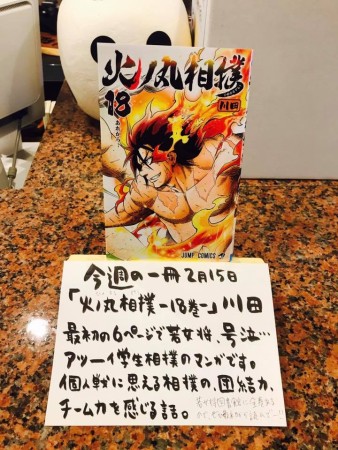 火ノ丸相撲
18
川田
JUMP COMICS
今週の一冊 2月15日
「火ノ丸相撲-18巻-」川田
最初の6ページで若女将、号泣…
アツーイ学生相撲のマンガです。
個人戦に思える相撲の、団結力、
チーム力を感じる話。